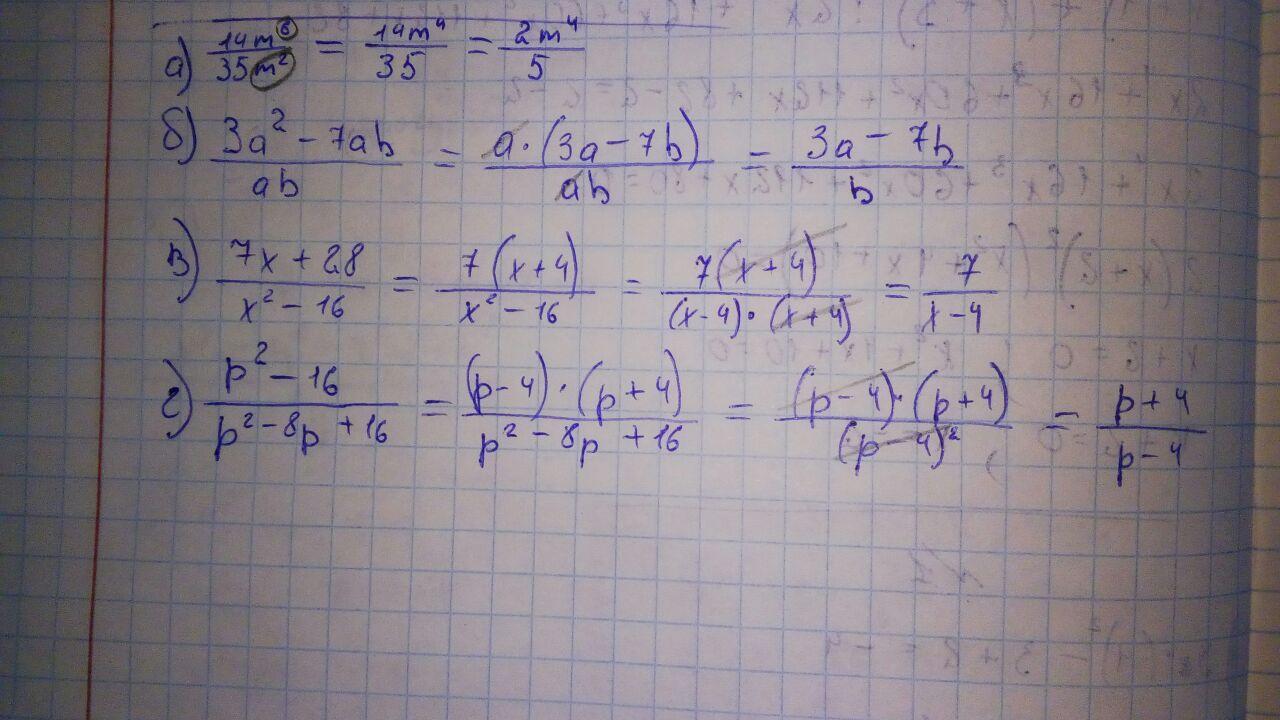 а) 14m⁶/35m² = 14m⁴/35 = 2m⁴/5
б) 3a² - 7ab/ab = a·(3a - 7b)/ab = 3a - 7b/b
в) 7x + 28/x² - 16 = 7(x+4)/x² - 16 = 7(x+4)/(x-4)·(x+4) = 7/x-4
г) p² - 16/p² - 8p + 16 = (p-4)·(p+4)/p² - 8p + 16 = (p-4)·(p+4)/(p-4)² = p+4/p-4